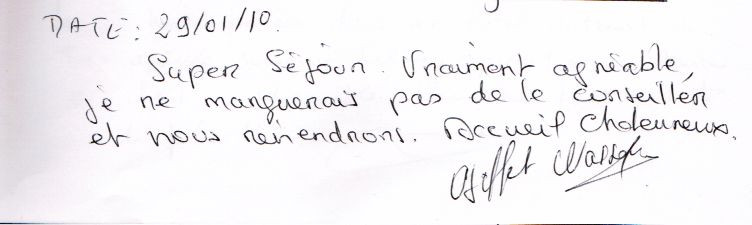 DATE: 29/01/10.
Super Séjour. Vraiment agréable,
je ne manquerais pas de le conseiller
et nous reviendrons. Accueil Chaleureux.